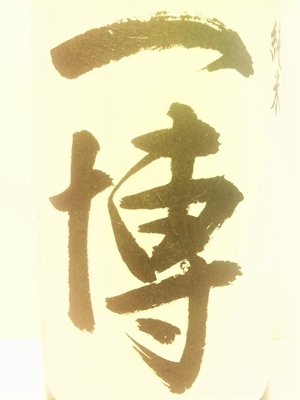 一博
純米